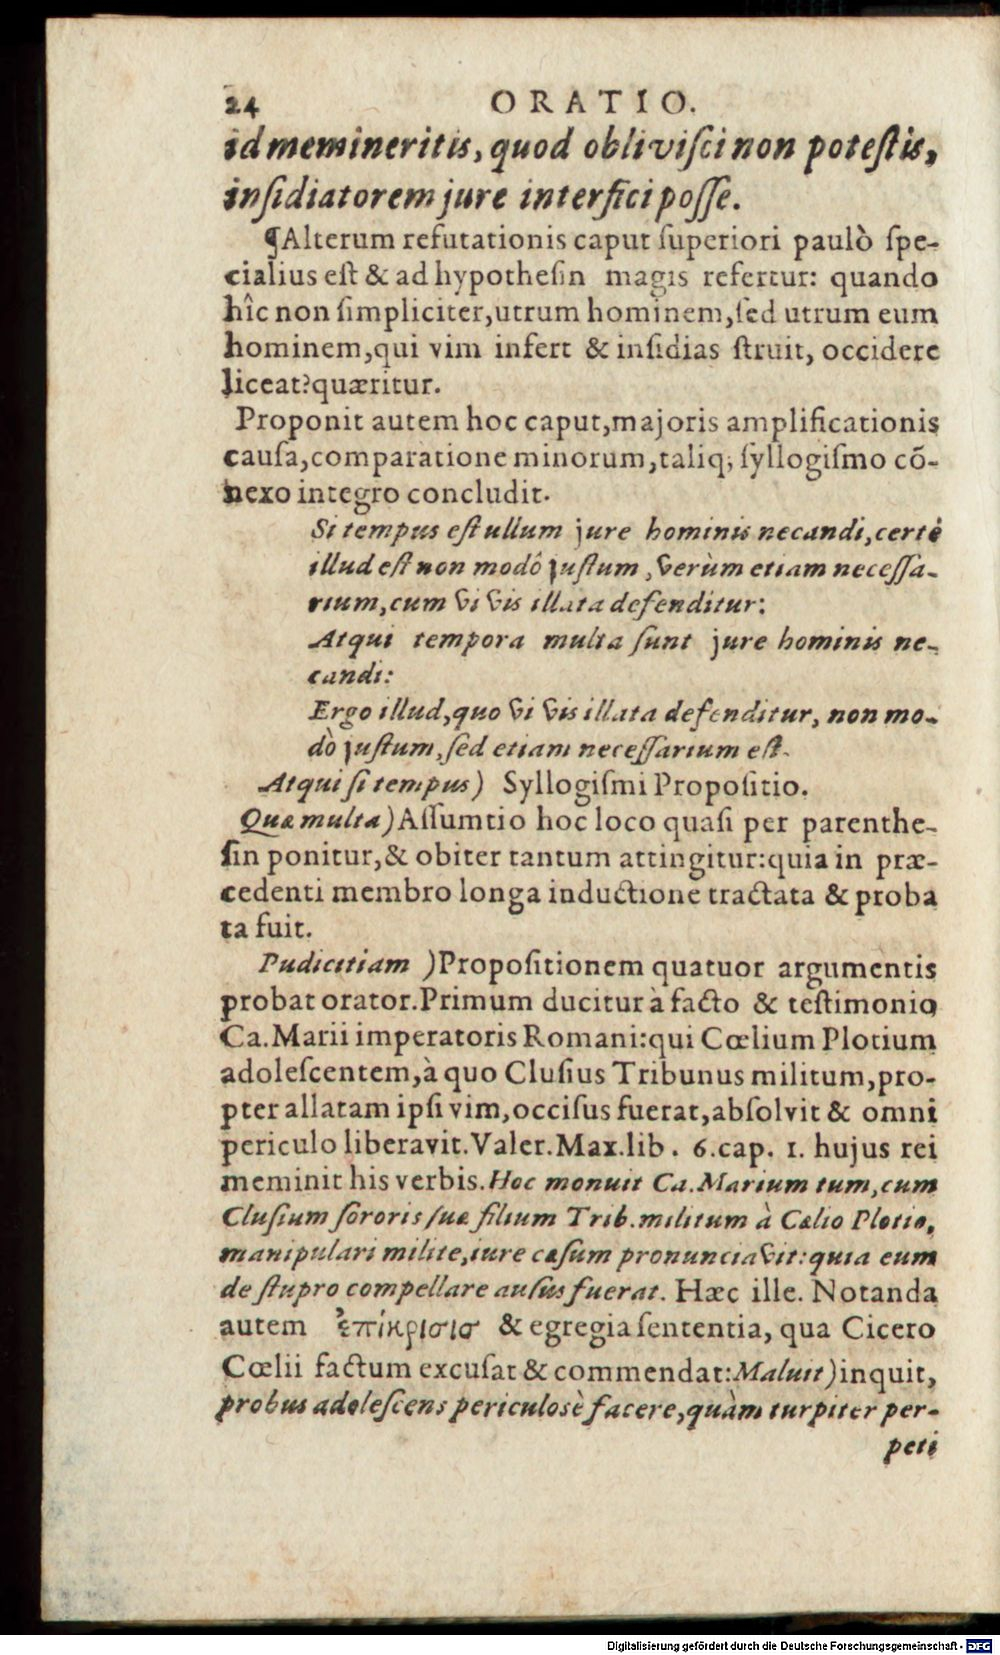 24 ORATIO.
id memineritis, quod obliviſci non poteſtis,
inſidiatorem jure interfici poſſe.
¶Alterum refutationis caput ſuperiori paulò ſpe-
cialius eſt & ad hypotheſin magis refertur: quando
hîc non ſimpliciter, utrum hominem, ſed utrum eum
hominem, qui vim infert & inſidias ſtruit, occidere
liceat? quæritur.
Proponit autem hoc caput, majoris amplificationis
cauſa, comparatione minorum, taliq; ſyllogiſmo cõ-
nexo integro concludit.
Si tempus eſt ullum jure hominis necandi, certè
illud eſt non modô juſtum, verùm etiam neceſſa-
rium, cum vi vis illata defenditur:
Atqui tempora multa ſunt jure hominis ne-
candi:
Ergo illud, quo vi vis illata defenditur, non mo-
dò juſtum, ſed etiam neceſſarium eſt.
Atqui ſi tempus) Syllogiſmi Propoſitio.
Quæ multa) Aſſumtio hoc loco quaſi per parenthe-
ſin ponitur, & obiter tantum attingitur: quia in præ-
cedenti membro longa inductione tractata & proba
ta fuit.
Pudicitiam) Propoſitionem quatuor argumentis
probat orator. Primum ducitur à facto & teſtimonio
Ca. Marii imperatoris Romani: qui Cœlium Plotium
adoleſcentem, à quo Cluſius Tribunus militum, pro-
pter allatam ipſi vim, occiſus fuerat, abſolvit & omni
periculo liberavit. Valer. Max. lib. 6. cap. 1. hujus rei
meminit his verbis. Hoc monuit Ca. Marium tum, cum
Cluſium ſororis ſuæ filium Trib. militum à Cælio Plotio,
manipulari milite, iure cæſum pronunciavit: quia eum
de ſtupro compellare auſus fuerat. Hæc ille. Notanda
autem ἐπίκρισις & egregia ſententia, qua Cicero
Cœlii factum excuſat & commendat: Maluit) inquit,
probus adoleſcens periculosè facere, quàm turpiter per-
peti
Digitalisierung gefördert durch die Deutsche Forschungsgemeinschaft - DFG